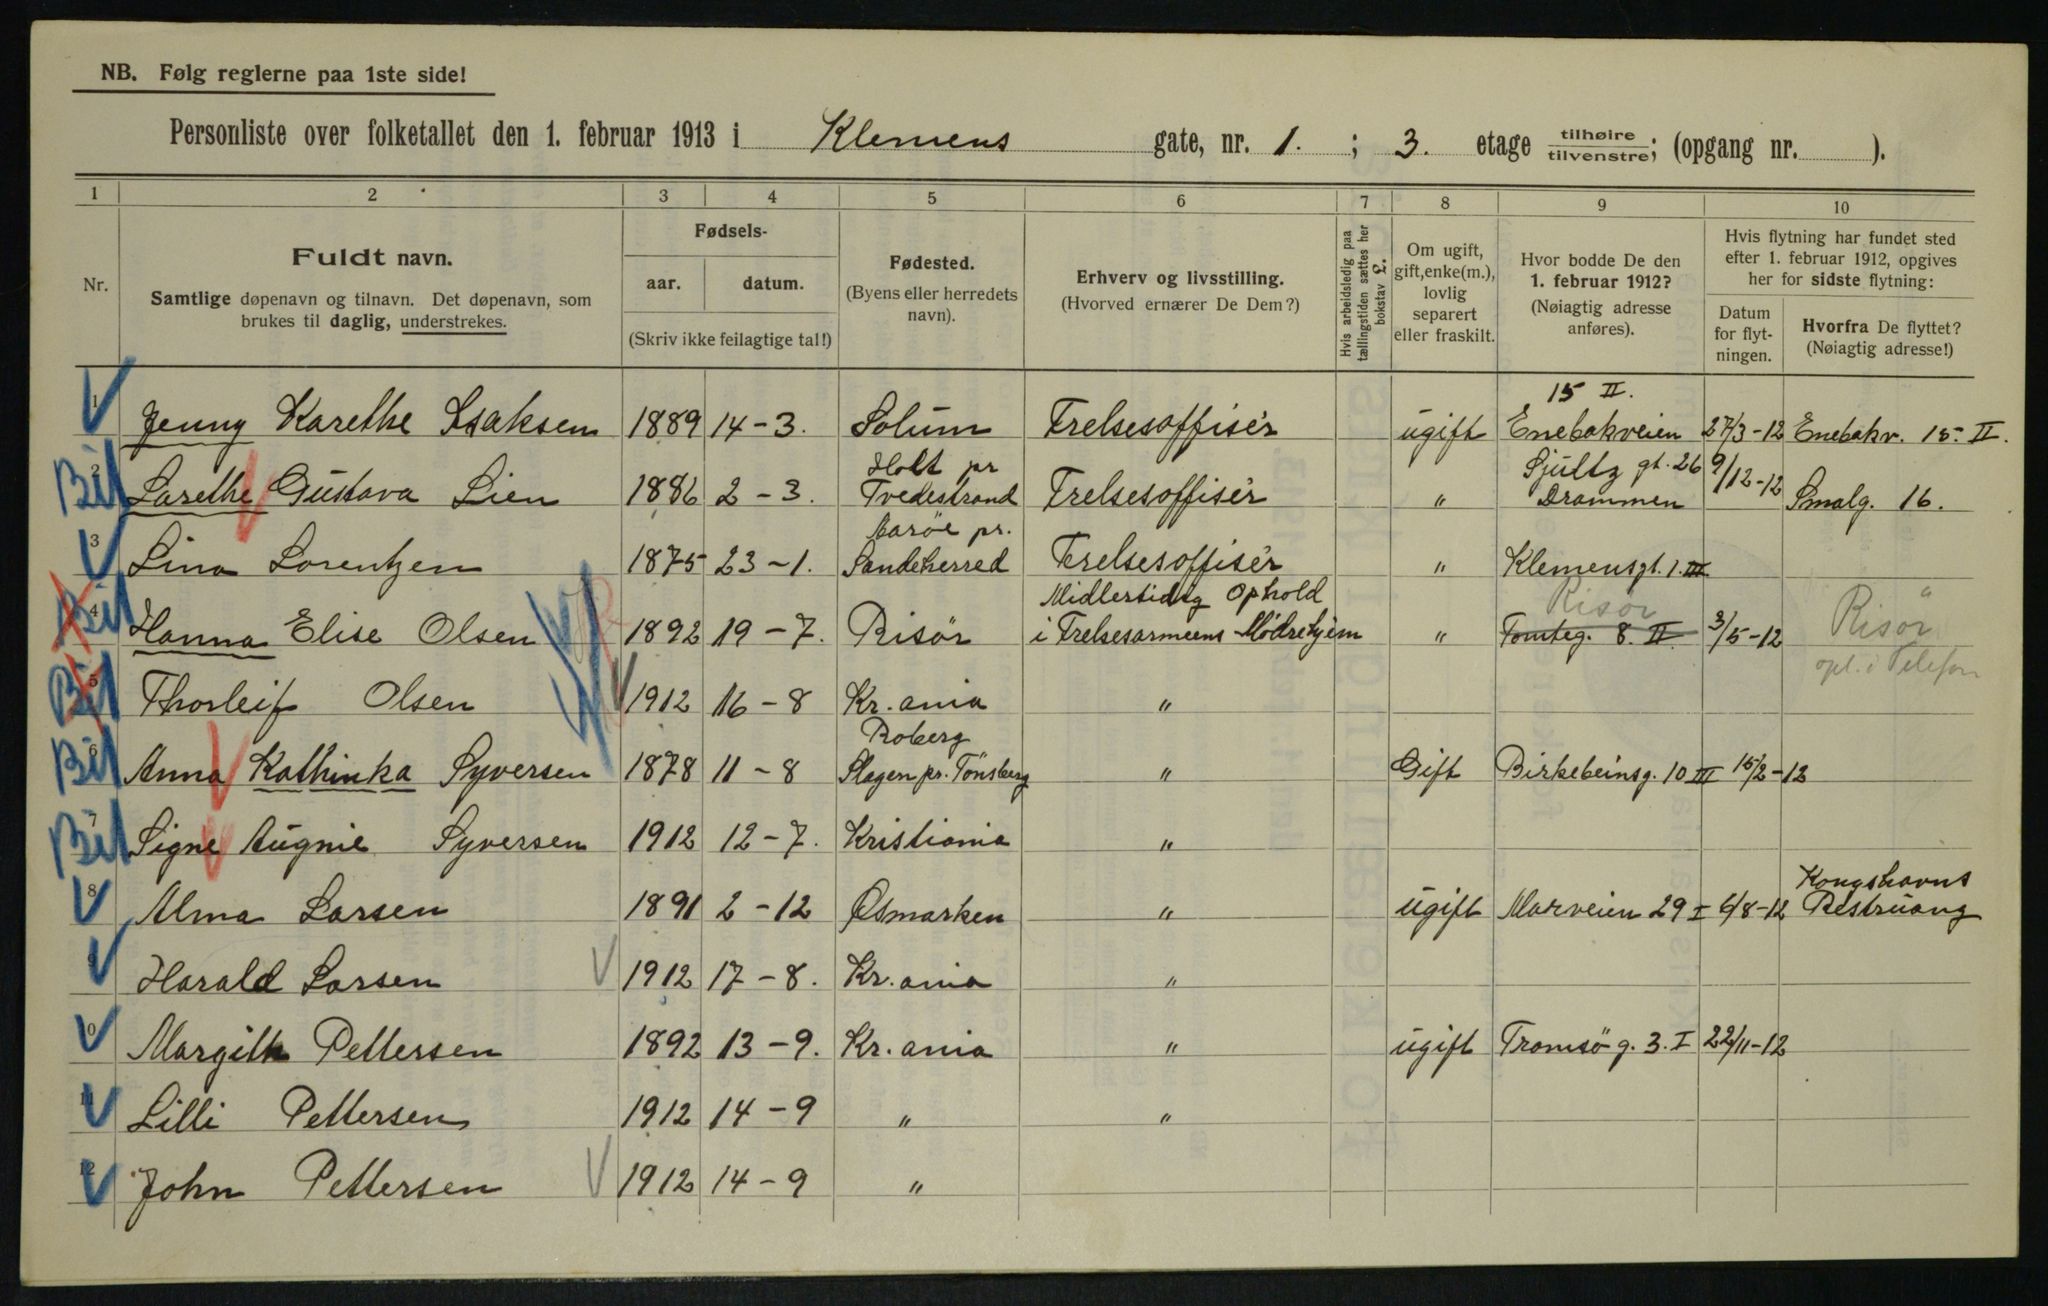 NB. Følg reglerne paa 1ste side!
Personliste over folketallet den 1. februar 1913 i Klemens gate, nr. 1. ; 3. etage tilhøire/tilvenstre; (opgang nr. ).
1 2 3 4 5 6 7 8 9 10
Nr.
Fuldt navn.
Samtlige døpenavn og tilnavn. Det døpenavn, som
brukes til daglig, understrekes.
Fødsels-
aar. datum.
(Skriv ikke feilagtige tal!)
Fødested.
(Byens eller herredets
navn).
Erhverv og livsstilling.
(Hvorved ernærer De Dem?)
Hvis arbeidsledig paa
tællingstiden sættes her
bokstav L.
Om ugift,
gift, enke(m.),
lovlig
separert
eller fraskilt.
Hvor bodde De den
1. februar 1912?
(Nøiagtig adresse
anføres).
Hvis flytning har fundet sted
efter 1. februar 1912, opgives
her for sidste flytning:
Datum
for flyt-
ningen.
Hvorfra De flyttet?
(Nøiagtig adresse!)
15 II.
1 Jenny Karethe Isaksen 1889 14-3. Solum Frelsesoffisér ugift Enebakveien 27/3-12 Enebakv. 15. II.
Holt pr Sjultz gt. 26
Bil 2 Larethe Gustava Lien 1886 2-3. Tvedestrand Frelsesoffisér " Drammen 9/12-12 Smalg. 16.
Marøe pr.
3 Lina Lorentzen 1875 23-1. Sandeherred Frelsesoffisér " Klemensgt. 1. III
Midlertidig Ophold Risør "
Bil 4 Hanna Elise Olsen 1892 19-7. Risör i Frelsesarmeens Mödrehjem " Tomteg. 8. II. 3/5-12 Risör
opl. i Telefon
Bil 5 Thorleif Olsen 1912 16-8 Kr.ania "
Roberg
Bil 6 Anna Kathinka Syversen 1878 11-8 Slagen pr. Tönsberg " Gift Birkebeinsg. 10 III 15/2-12
Bil 7 Signe Augnie Syversen 1912 12-7. Kristiania "
Kongshavns
8 Alma Larsen 1891 2-12 Ømarken " ugift Maxveien 29 I 6/8-12 Restruang
9 Harald Larsen 1912 17-8. Kr.ania "
10 Margith Pettersen 1892 13-9. Kr.ania " ugift Tromsö g. 3. I 22/11-12
11 Lilli Pettersen 1912 14-9 " "
12 John Pettersen 1912 14-9 "